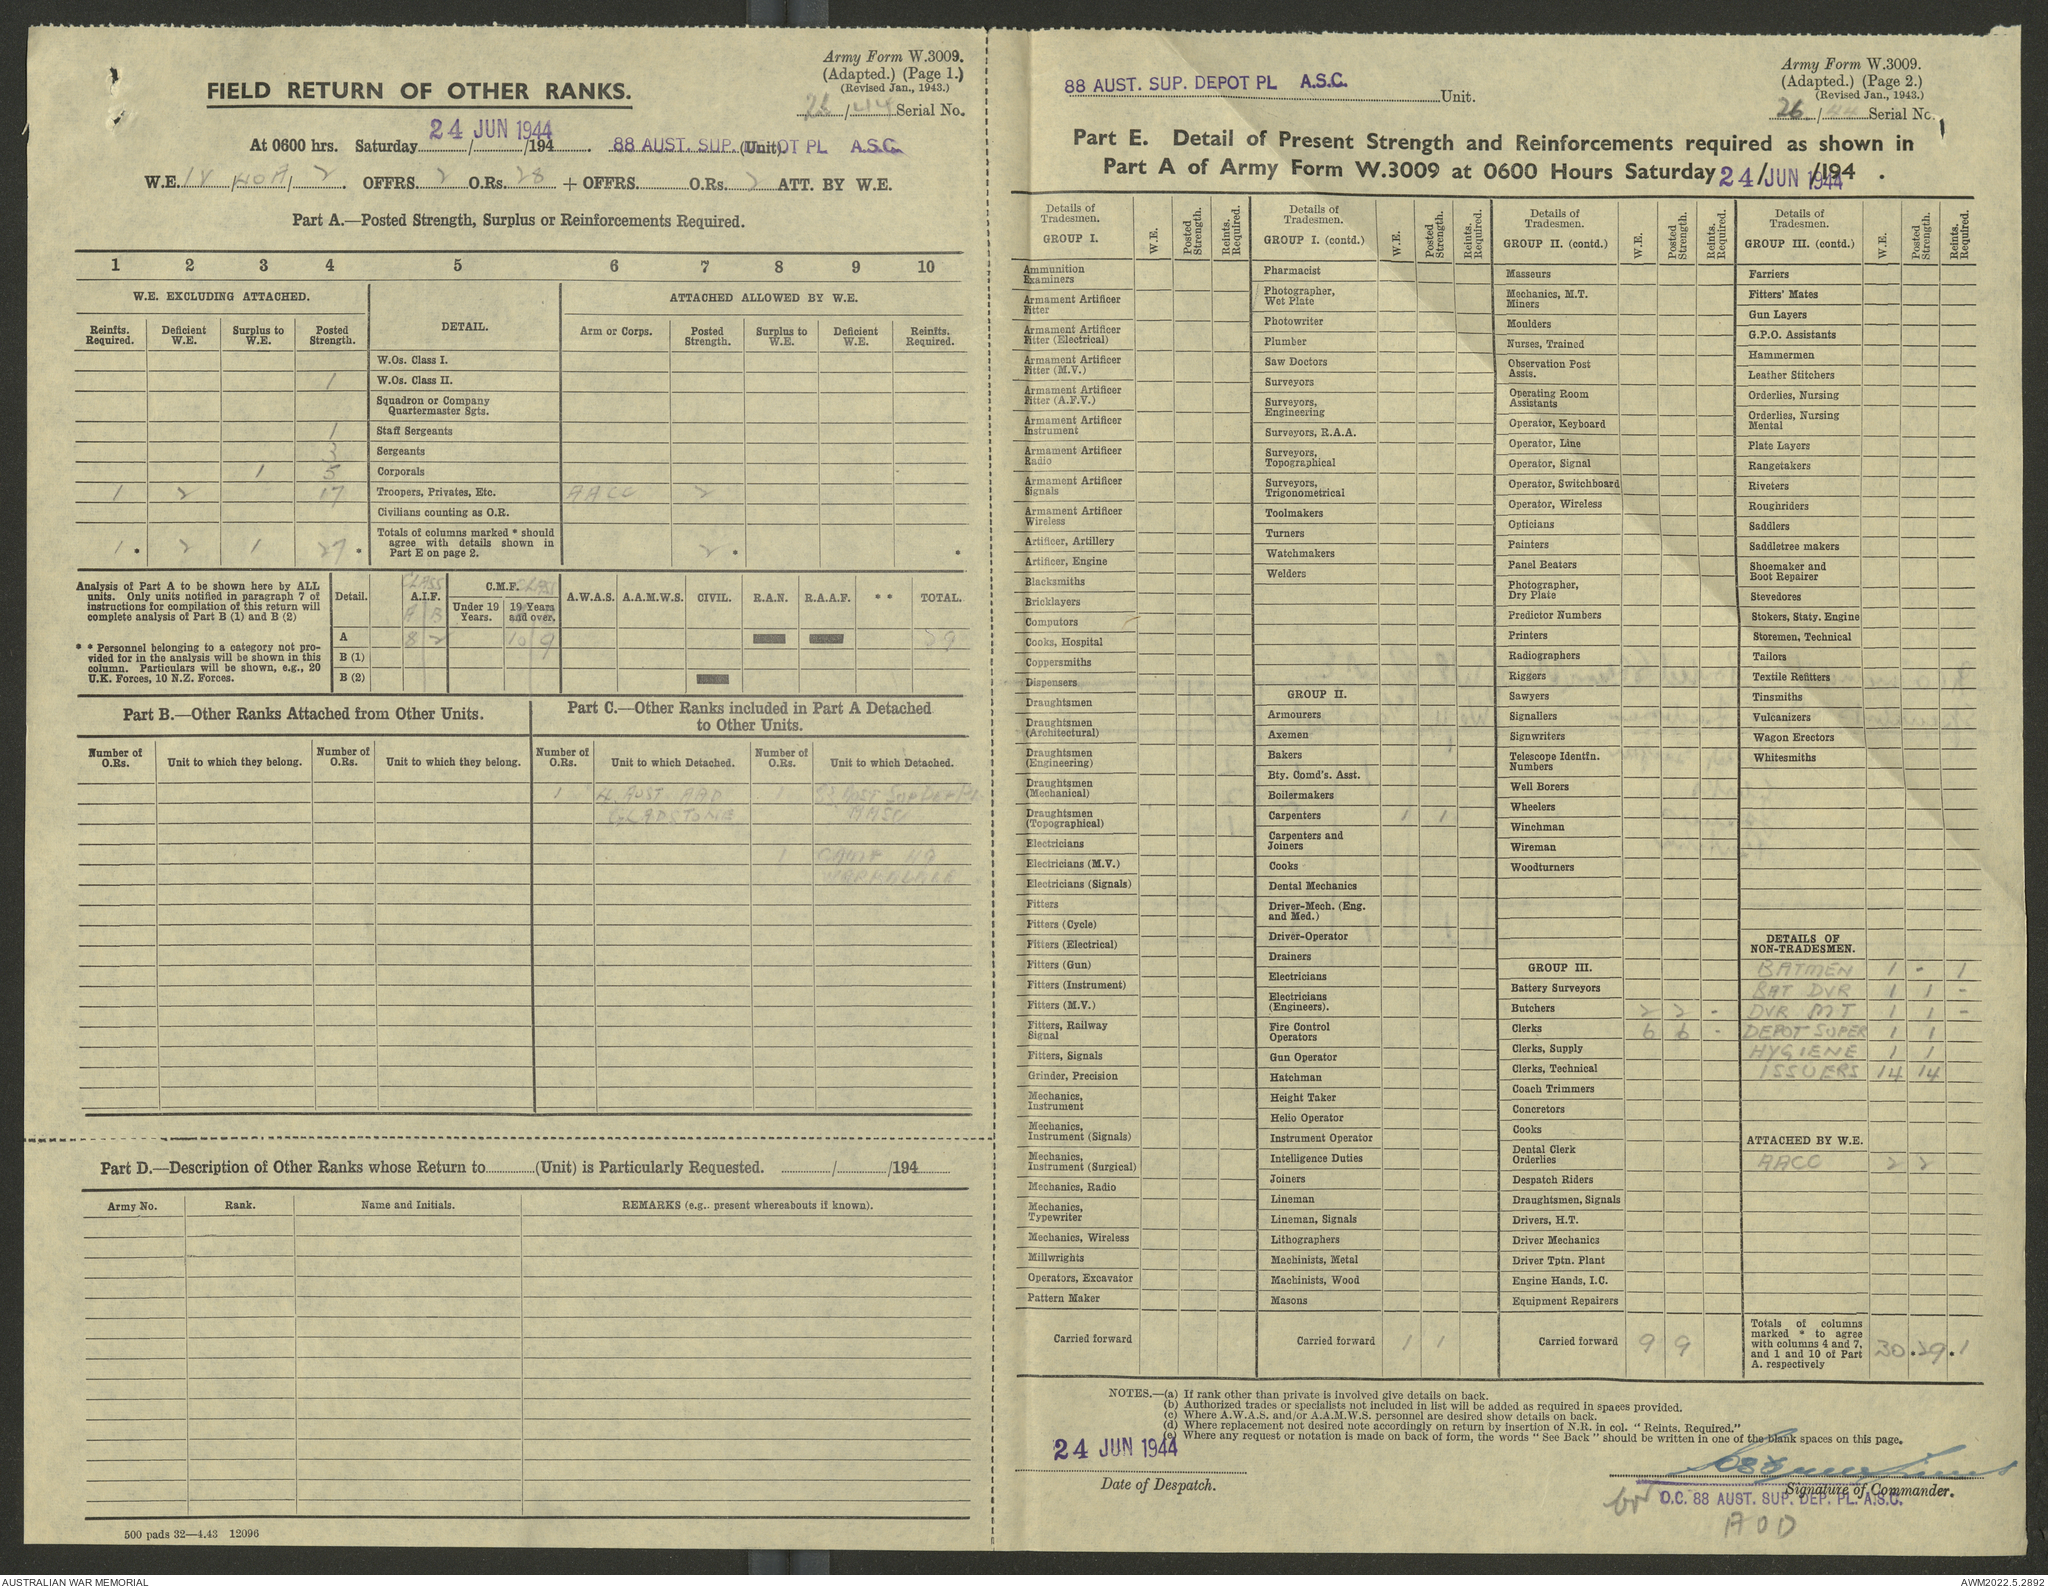 Army Form W.3009.
(Adapted.) (Page 1.)
(Revised Jan., 1943.)
26/44 Serial No.
FIELD RETURN OF OTHER RANKS.
At 0600 hrs. Saturday 24 JUN 1944 /194 . 88 AUST. SUP. (Unit) OT PL A.S.C.
W.E. IV 2 OFFRS. 2 O.Rs. 28 + OFFRS. O.Rs. 2 ATT. BY W.E.
Part A.—Posted Strength, Surplus or Reinforcements Required.
1 2 3 4 5 6 7 8 9 10
W.E. EXCLUDING ATTACHED. DETAIL. ATTACHED ALLOWED BY W.E.
Reinfts. Required. Deficient W.E. Surplus to W.E. Posted Strength. Arm or Corps. Posted Strength. Surplus to W.E. Deficient W.E. Reinfts. Required.
W.Os. Class I.
1 W.Os. Class II.
Squadron or Company
Quartermaster Sgts.
1 Staff Sergeants
3 Sergeants
1 5 Corporals
1 2 17 Troopers, Privates, Etc. AACC 2
Civilians counting as O.R.
Totals of columns marked * should
agree with details shown in
1 * 2 1 27 * Part E on page 2. 2 * *
Analysis of Part A to be shown here by ALL
units. Only units notified in paragraph 7 of
instructions for compilation of this return will
complete analysis of Part B (1) and B (2)
* * Personnel belonging to a category not pro-
vided for in the analysis will be shown in this
column. Particulars will be shown, e.g., 20
U.K. Forces, 10 N.Z. Forces.
Detail. CLASS A.I.F. A B C.M.F. CLASS Under 19 Years. 19 Years and over. A.W.A.S. A.A.M.W.S. CIVIL. R.A.N. R.A.A.F. * * TOTAL.
A 8 2 10 9 29
B (1)
B (2)
Part B.—Other Ranks Attached from Other Units.
Number of O.Rs. Unit to which they belong. Number of O.Rs. Unit to which they belong.
Part C.—Other Ranks included in Part A Detached
to Other Units.
Number of O.Rs. Unit to which Detached. Number of O.Rs. Unit to which Detached.
1 AUST AAD 1
GLADSTONE AASC
1 CAMP HQ
Part D.—Description of Other Ranks whose Return to (Unit) is Particularly Requested. / /194
Army No. Rank. Name and Initials. REMARKS (e.g., present whereabouts if known).
500 pads 32—4.43 12096
88 AUST. SUP. DEPOT PL A.S.C. Unit.
Army Form W.3009.
(Adapted.) (Page 2.)
(Revised Jan., 1943.)
26/44 Serial No.
Part E. Detail of Present Strength and Reinforcements required as shown in
Part A of Army Form W.3009 at 0600 Hours Saturday 24/JUN/1944 /194 .
Details of Tradesmen. W.E. Posted Strength. Reints. Required.
GROUP I.
Ammunition Examiners
Armament Artificer Fitter
Armament Artificer Fitter (Electrical)
Armament Artificer Fitter (M.V.)
Armament Artificer Fitter (A.F.V.)
Armament Artificer Instrument
Armament Artificer Radio
Armament Artificer Signals
Armament Artificer Wireless
Artificer, Artillery
Artificer, Engine
Blacksmiths
Bricklayers
Computors
Cooks, Hospital
Coppersmiths
Dispensers
Draughtsmen
Draughtsmen (Architectural)
Draughtsmen (Engineering)
Draughtsmen (Mechanical)
Draughtsmen (Topographical)
Electricians
Electricians (M.V.)
Electricians (Signals)
Fitters
Fitters (Cycle)
Fitters (Electrical)
Fitters (Gun)
Fitters (Instrument)
Fitters (M.V.)
Fitters, Railway Signal
Fitters, Signals
Grinder, Precision
Mechanics, Instrument
Mechanics, Instrument (Signals)
Mechanics, Instrument (Surgical)
Mechanics, Radio
Mechanics, Typewriter
Mechanics, Wireless
Millwrights
Operators, Excavator
Pattern Maker
Carried forward
Details of Tradesmen. W.E. Posted Strength. Reints. Required.
GROUP I. (contd.)
Pharmacist
Photographer, Wet Plate
Photowriter
Plumber
Saw Doctors
Surveyors
Surveyors, Engineering
Surveyors, R.A.A.
Surveyors, Topographical
Surveyors, Trigonometrical
Toolmakers
Turners
Watchmakers
Welders
GROUP II.
Armourers
Axemen
Bakers
Bty. Comd's. Asst.
Boilermakers
Carpenters 1 1
Carpenters and Joiners
Cooks
Dental Mechanics
Driver-Mech. (Eng. and Med.)
Driver-Operator
Drainers
Electricians
Electricians (Engineers).
Fire Control Operators
Gun Operator
Hatchman
Height Taker
Helio Operator
Instrument Operator
Intelligence Duties
Joiners
Lineman
Lineman, Signals
Lithographers
Machinists, Metal
Machinists, Wood
Masons
Carried forward 1 1
Details of Tradesmen. W.E. Posted Strength. Reints. Required.
GROUP II. (contd.)
Masseurs
Mechanics, M.T.
Miners
Moulders
Nurses, Trained
Observation Post Assts.
Operating Room Assistants
Operator, Keyboard
Operator, Line
Operator, Signal
Operator, Switchboard
Operator, Wireless
Opticians
Painters
Panel Beaters
Photographer, Dry Plate
Predictor Numbers
Printers
Radiographers
Riggers
Sawyers
Signallers
Signwriters
Telescope Identfn. Numbers
Well Borers
Wheelers
Winchman
Wireman
Woodturners
GROUP III.
Battery Surveyors
Butchers 2 2 -
Clerks 6 6 -
Clerks, Supply
Clerks, Technical
Coach Trimmers
Concretors
Cooks
Dental Clerk Orderlies
Despatch Riders
Draughtsmen, Signals
Drivers, H.T.
Driver Mechanics
Driver Tptn. Plant
Engine Hands, I.C.
Equipment Repairers
Carried forward 9 9
Details of Tradesmen. W.E. Posted Strength. Reints. Required.
GROUP III. (contd.)
Farriers
Fitters' Mates
Gun Layers
G.P.O. Assistants
Hammermen
Leather Stitchers
Orderlies, Nursing
Orderlies, Nursing Mental
Plate Layers
Rangetakers
Riveters
Roughriders
Saddlers
Saddletree makers
Shoemaker and Boot Repairer
Stevedores
Stokers, Staty. Engine
Storemen, Technical
Tailors
Textile Refitters
Tinsmiths
Vulcanizers
Wagon Erectors
Whitesmiths
DETAILS OF NON-TRADESMEN.
BATMEN 1 - 1
BAT DVR 1 1 -
DVR MT 1 1 -
DEPOT SUPER 1 1
HYGIENE 1 1
ISSUERS 14 14
ATTACHED BY W.E.
AACC 2 2
Totals of columns
marked * to agree
with columns 4 and 7,
and 1 and 10 of Part
A. respectively 30 * 29 * 1
NOTES.—(a) If rank other than private is involved give details on back.
(b) Authorized trades or specialists not included in list will be added as required in spaces provided.
(c) Where A.W.A.S. and/or A.A.M.W.S. personnel are desired show details on back.
(d) Where replacement not desired note accordingly on return by insertion of N.R. in col. "Reints. Required."
(e) Where any request or notation is made on back of form, the words "See Back" should be written in one of the blank spaces on this page.
24 JUN 1944
Date of Despatch.
Signature of Commander.
for O.C. 88 AUST. SUP. DEP. PL. A.S.C.
AOD
AUSTRALIAN WAR MEMORIAL
AWM2022.5.2892